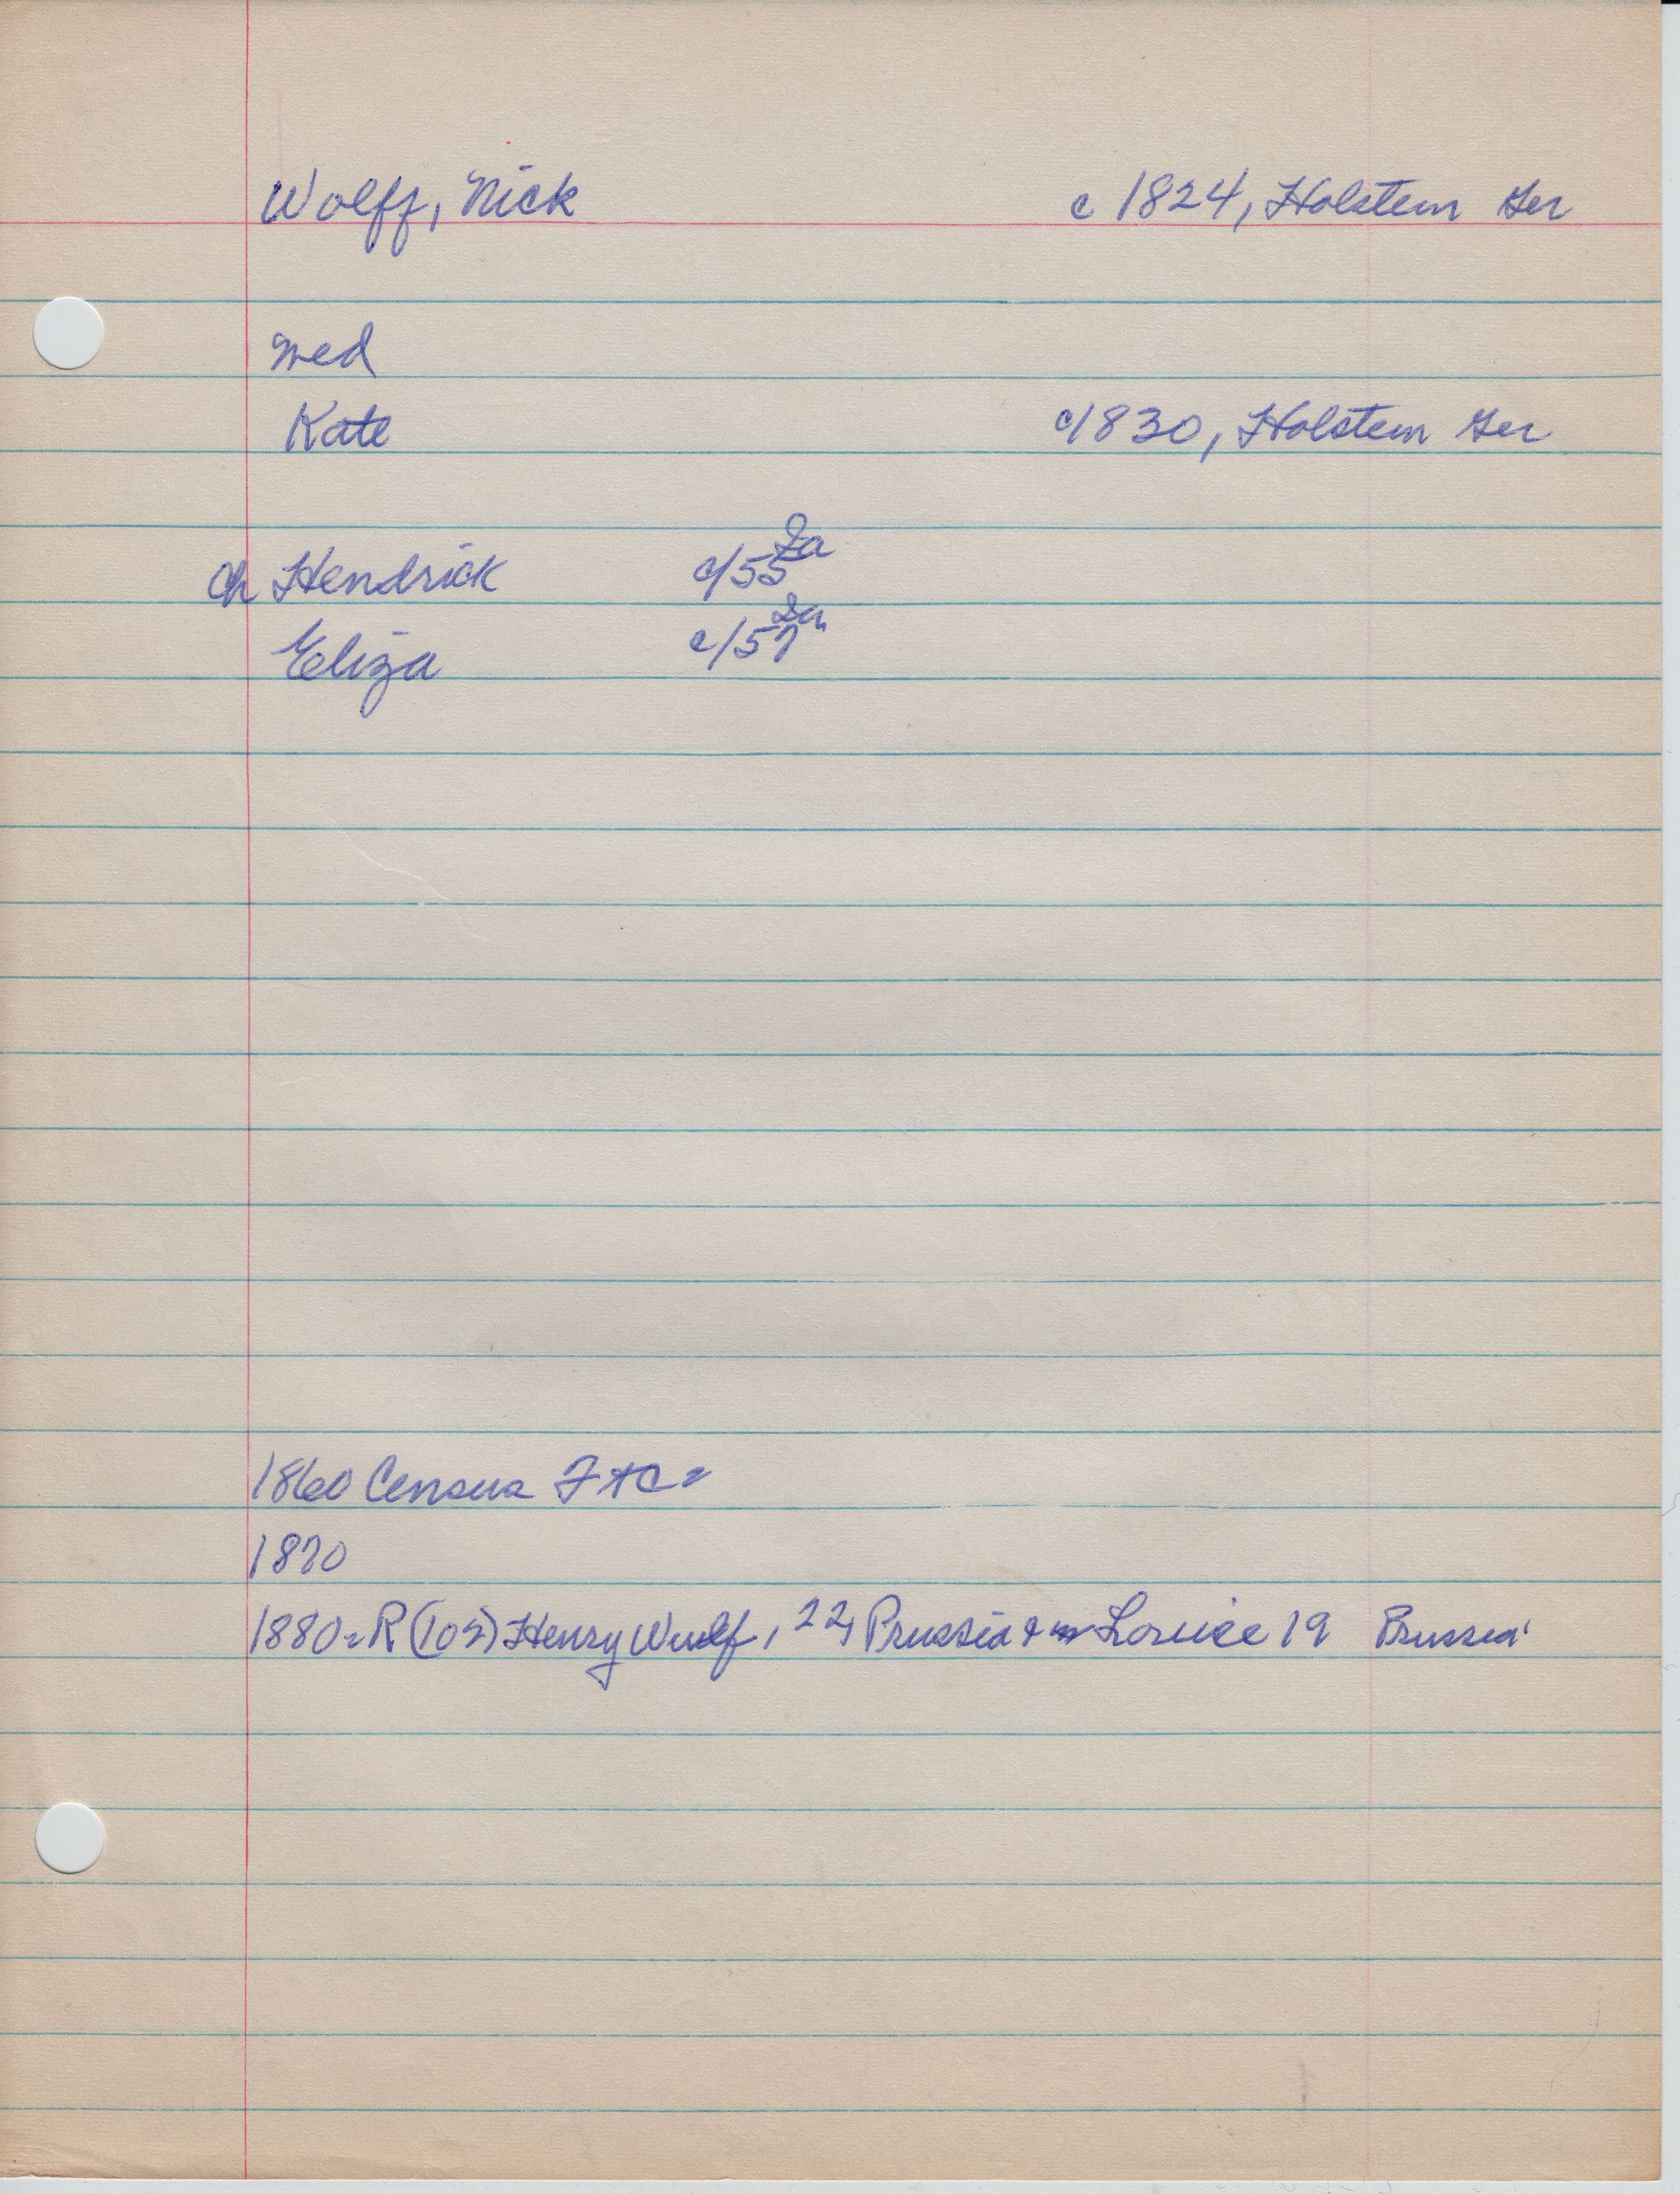 Wolff, Nick c 1824, Holstein Ger
med
Kate c/830, Holstein Ger
ch Hendrick c/55 Ia
Eliza c/57 Ia
1860 Census
1870
1880 = R (105) Henry Wulf, 22, Prussia & Louise 19 Prussia